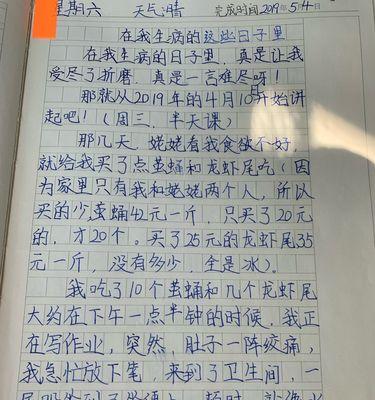 星期六 天气晴 完成时间2019年5.4日
在我生病的这些日子里
在我生病的日子里，真是让我
受尽了折磨，真是一言难尽呀！
那就从2019年的4月10日开始讲
起吧！（周三，半天课）
那几天，姥姥看我食欲不好，
就给我买了点茧蛹和龙虾尾吃（因
为家里只有我和姥姥两个人，所以
买的少，茧蛹42元一斤，只买了20元
的，才20个。买了25元的龙虾尾35
元一斤，没有多少，全是冰）。
我吃了10个茧蛹和几个龙虾尾
大约在下午一点半钟的时候，我正
在写作业，突然，肚子一阵绞痛，
我急忙放下笔，来到了卫生间，一